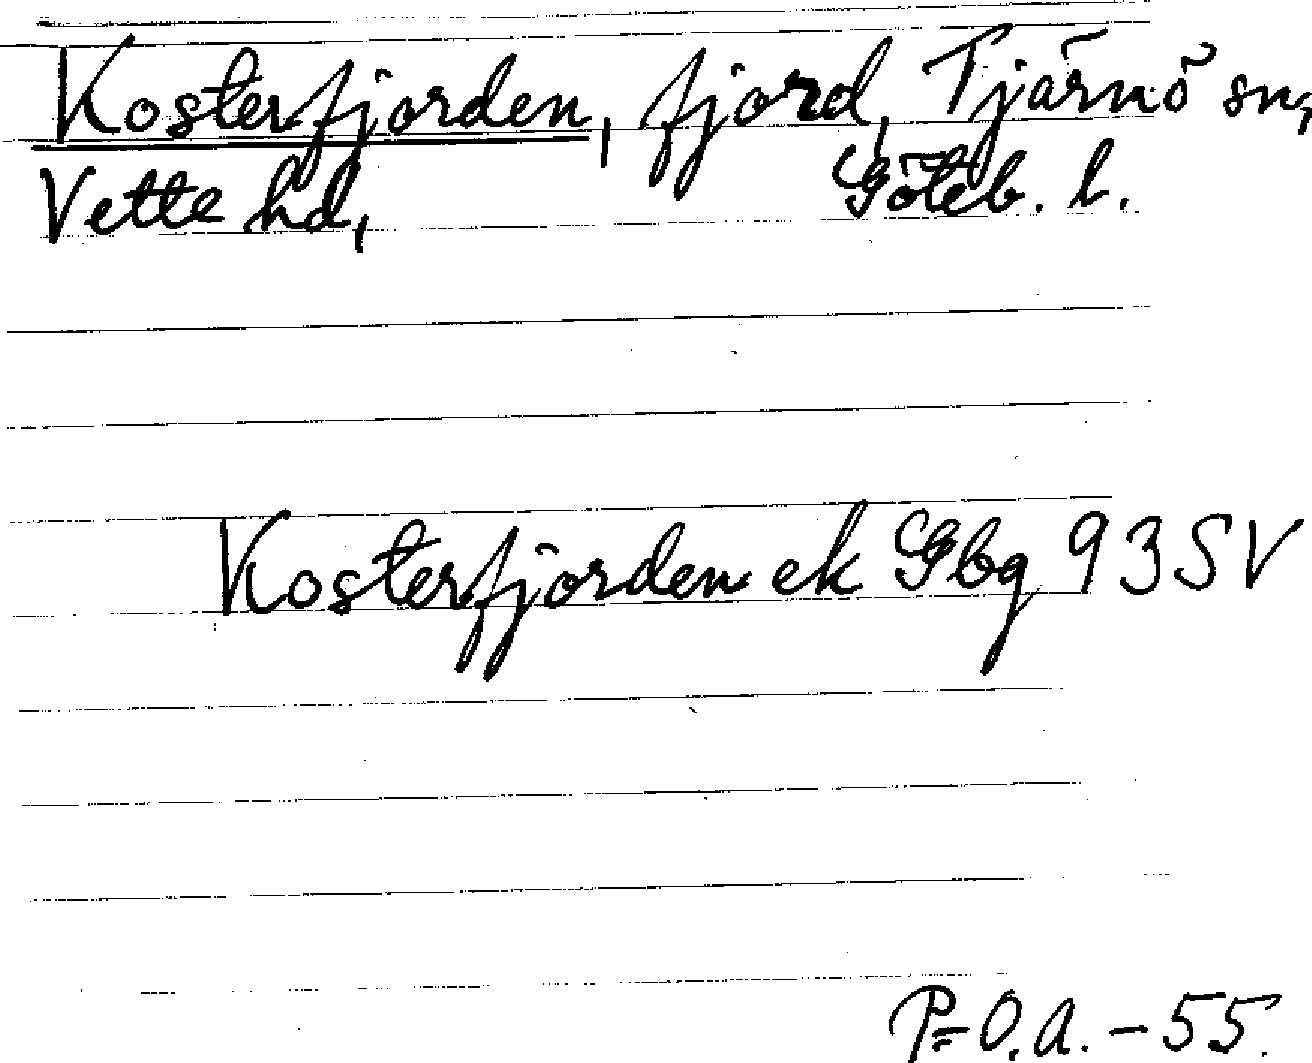 Kosterfjorden, fjord, Tjärnö sn,
Vette hd, Göteb. l.
Kosterfjorden ek Gbg 93 SV
P=O.A. - 55.